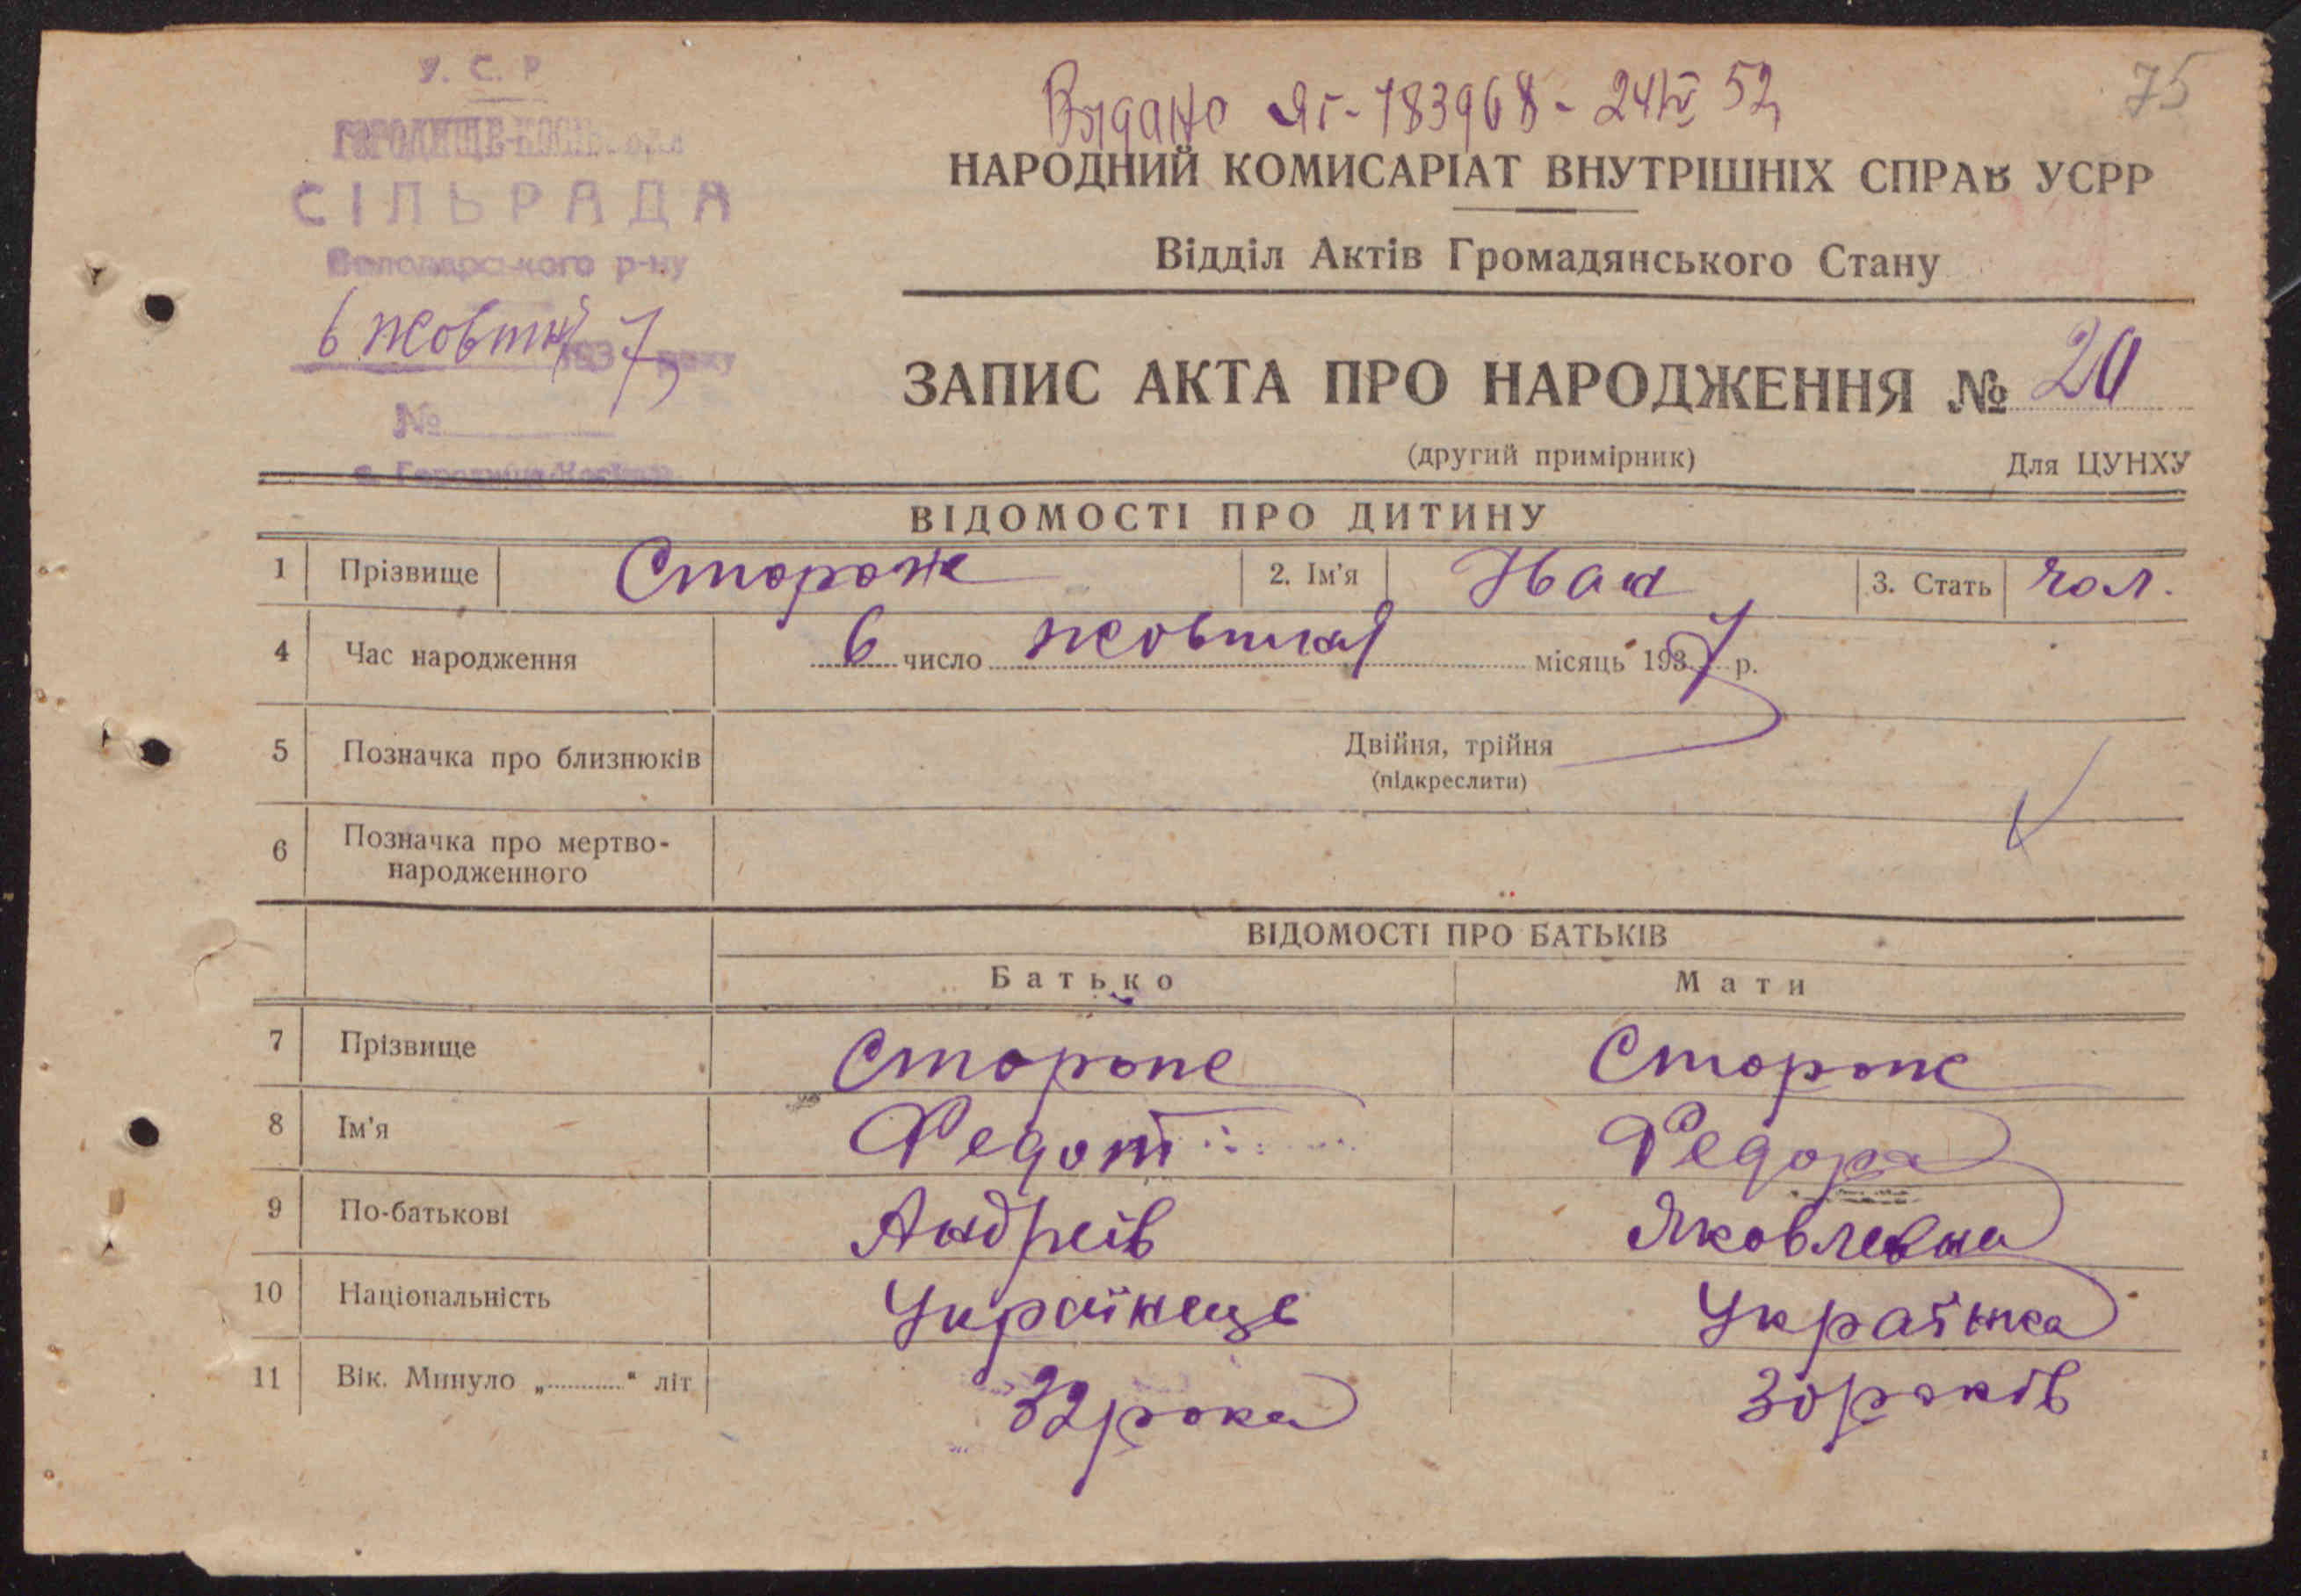 У. С. Р
ГОРОДИЩЕ-
СІЛЬРАДА
Володарського р-ну
6 жовтня 1937 року
№
Видано ЯГ-783968 - 24 IV 52
75
НАРОДНИЙ КОМИСАРІАТ ВНУТРІШНІХ СПРАВ УСРР
Відділ Актів Громадянського Стану
ЗАПИС АКТА ПРО НАРОДЖЕННЯ № 20
(другий примірник) Для ЦУНХУ
ВІДОМОСТІ ПРО ДИТИНУ
1 Прізвище Сторож 2. Ім'я Іван 3. Стать чол.
4 Час народження 6 число жовтня місяць 1937 р.
5 Позначка про близнюків Двійня, трійня
(підкреслити)
6 Позначка про мертво-
народженного
ВІДОМОСТІ ПРО БАТЬКІВ
Батько Мати
7 Прізвище Сторож Сторож
8 Ім'я Федот Федора
9 По-батькові Андреів Яковлевна
10 Національність Українець Українка
11 Вік. Минуло „ “ літ 32 рока 30 років